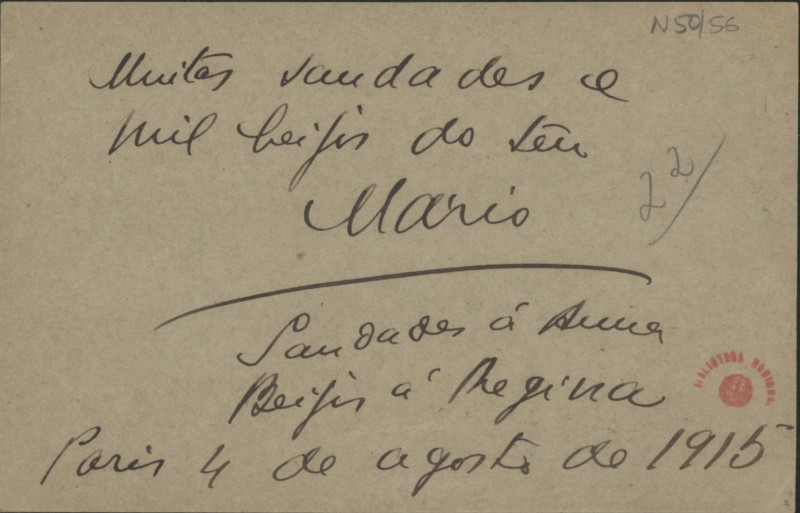 N50/56
Muitas saudades e
mil beijos do teu
Mario
22/
Saudades á Anna
Beijos á Regina
Paris 4 de agosto de 1915
BIBLIOTECA NACIONAL